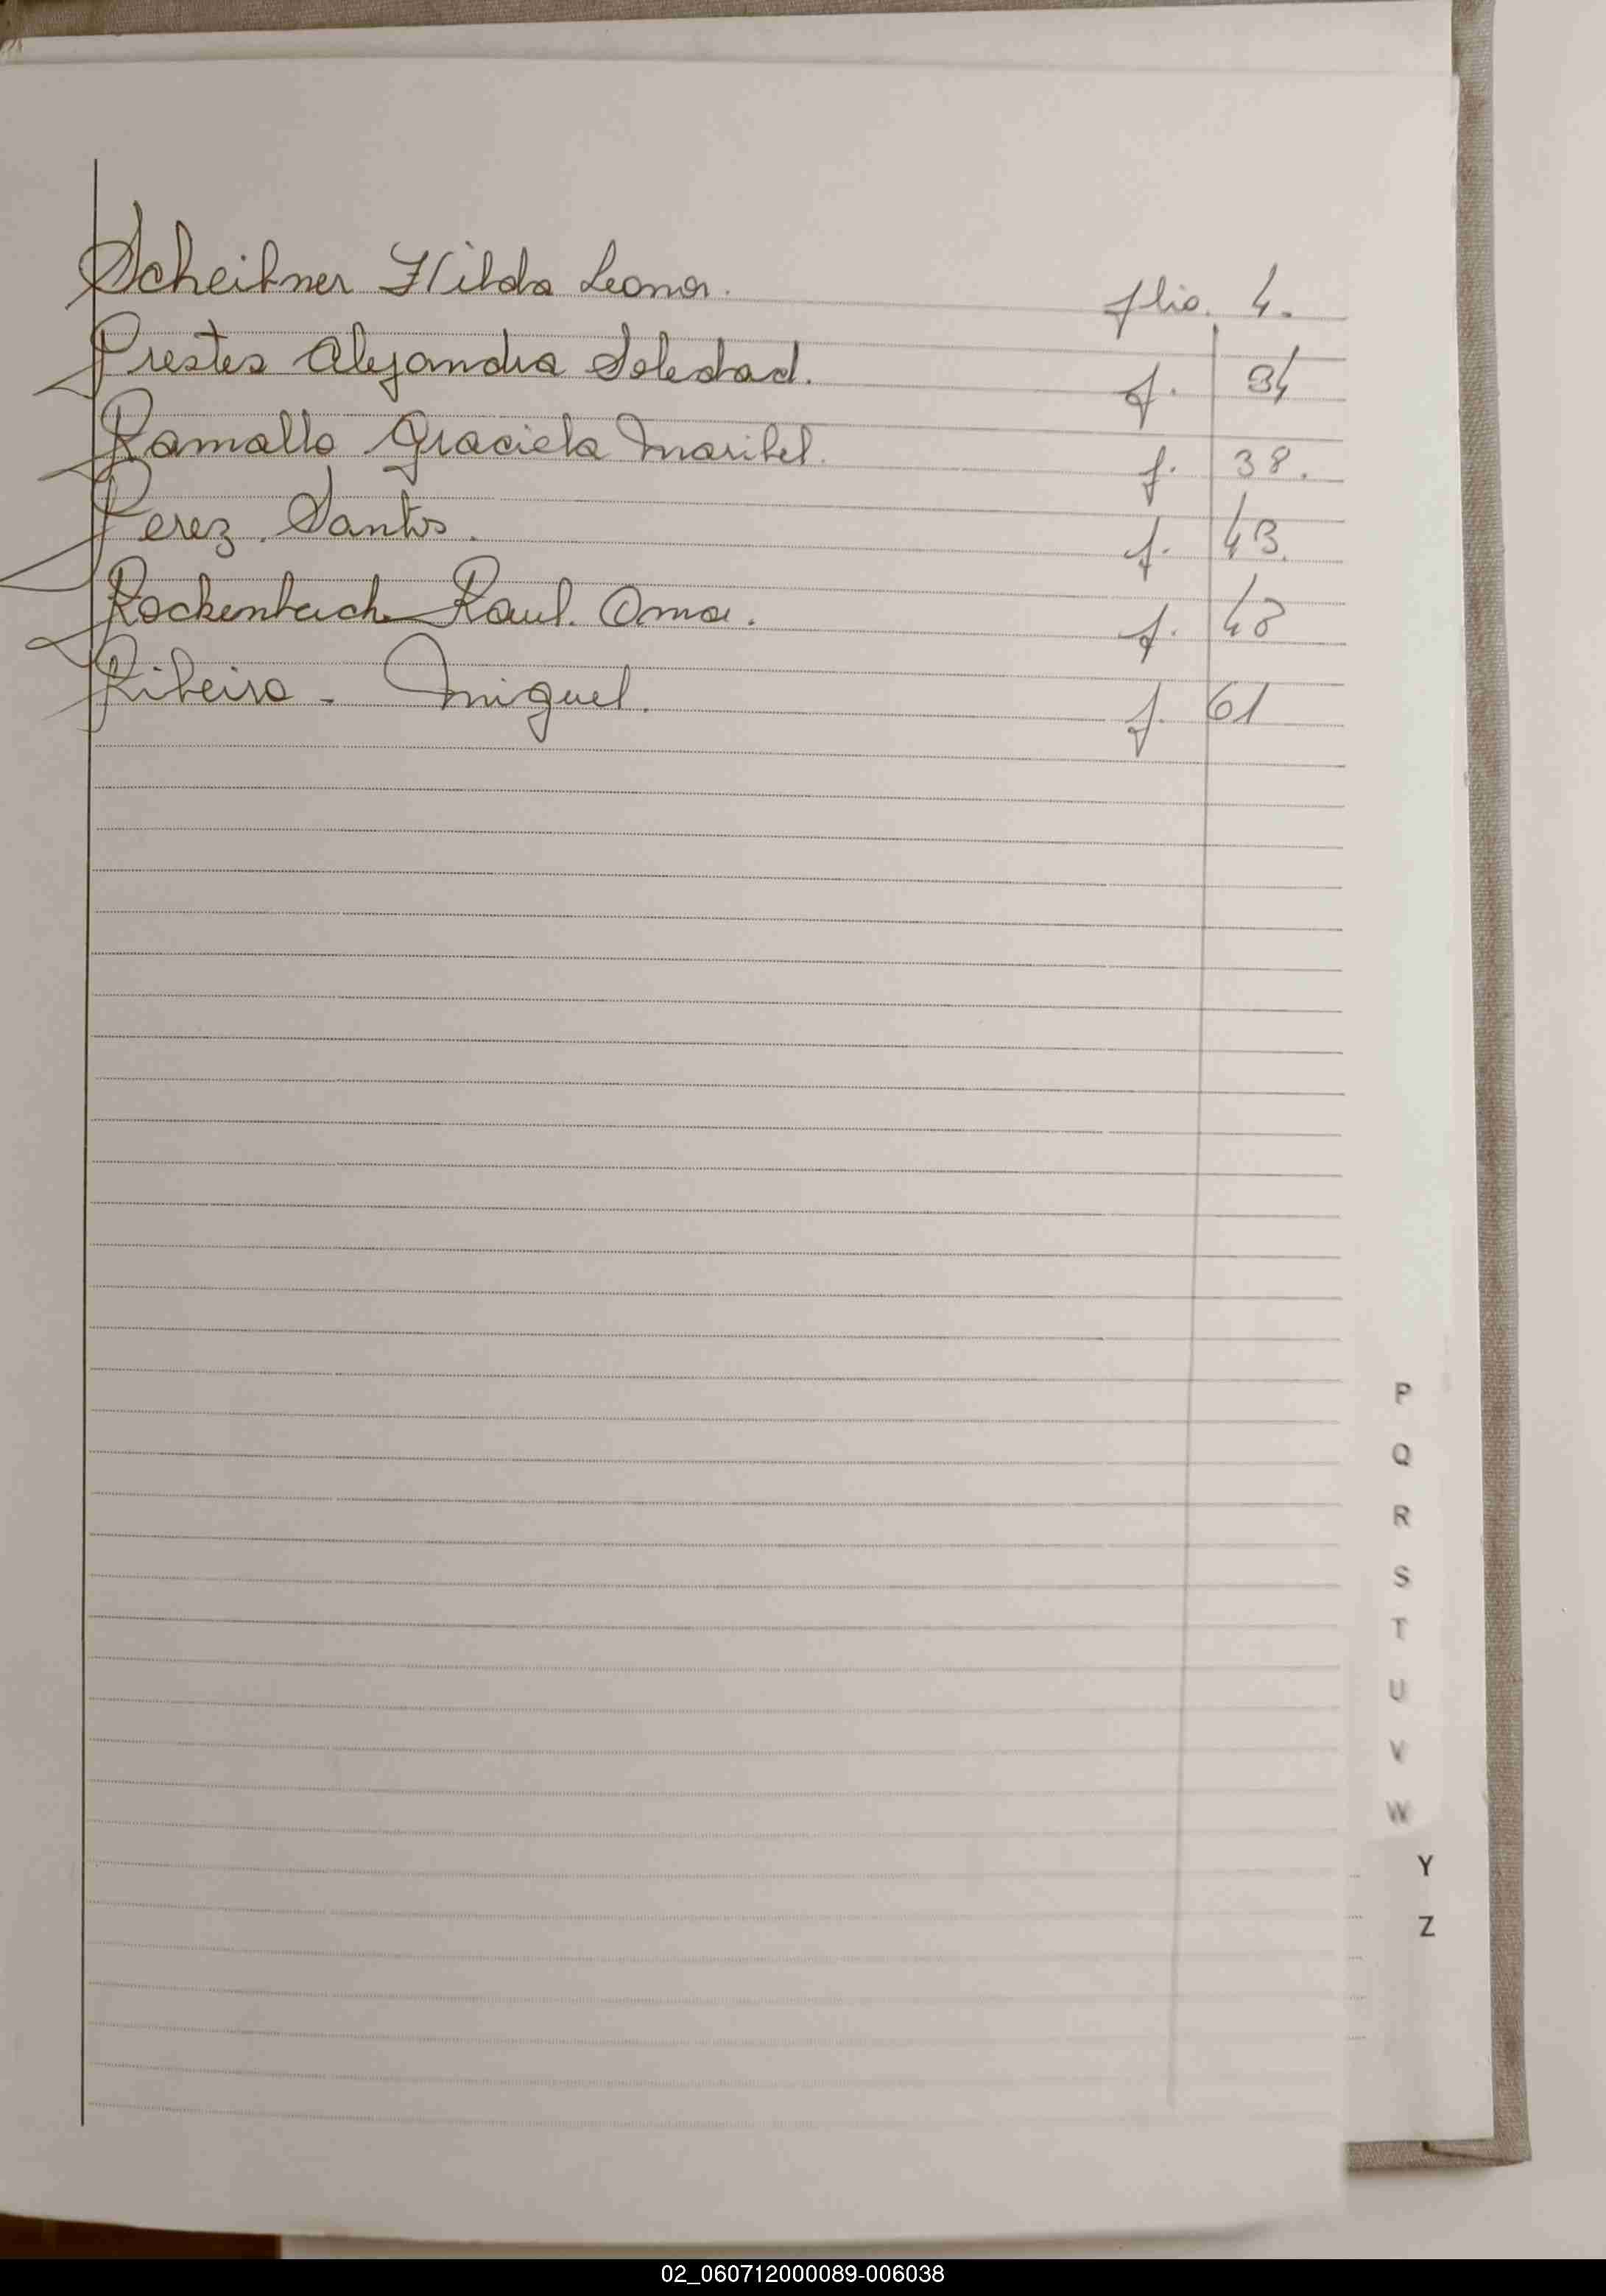 Scheibner Hilda Leonor. flio. 4.
Prestes Alejandra Soledad. f. 34
Ramallo Graciela Maribel. f. 38.
Perez Santos. f. 43.
Rockenbach Raul. Omar. f. 48
Ribeiro - Miguel. f. 61
P
Q
R
S
T
U
V
W
Y
Z
02_060712000089-006038